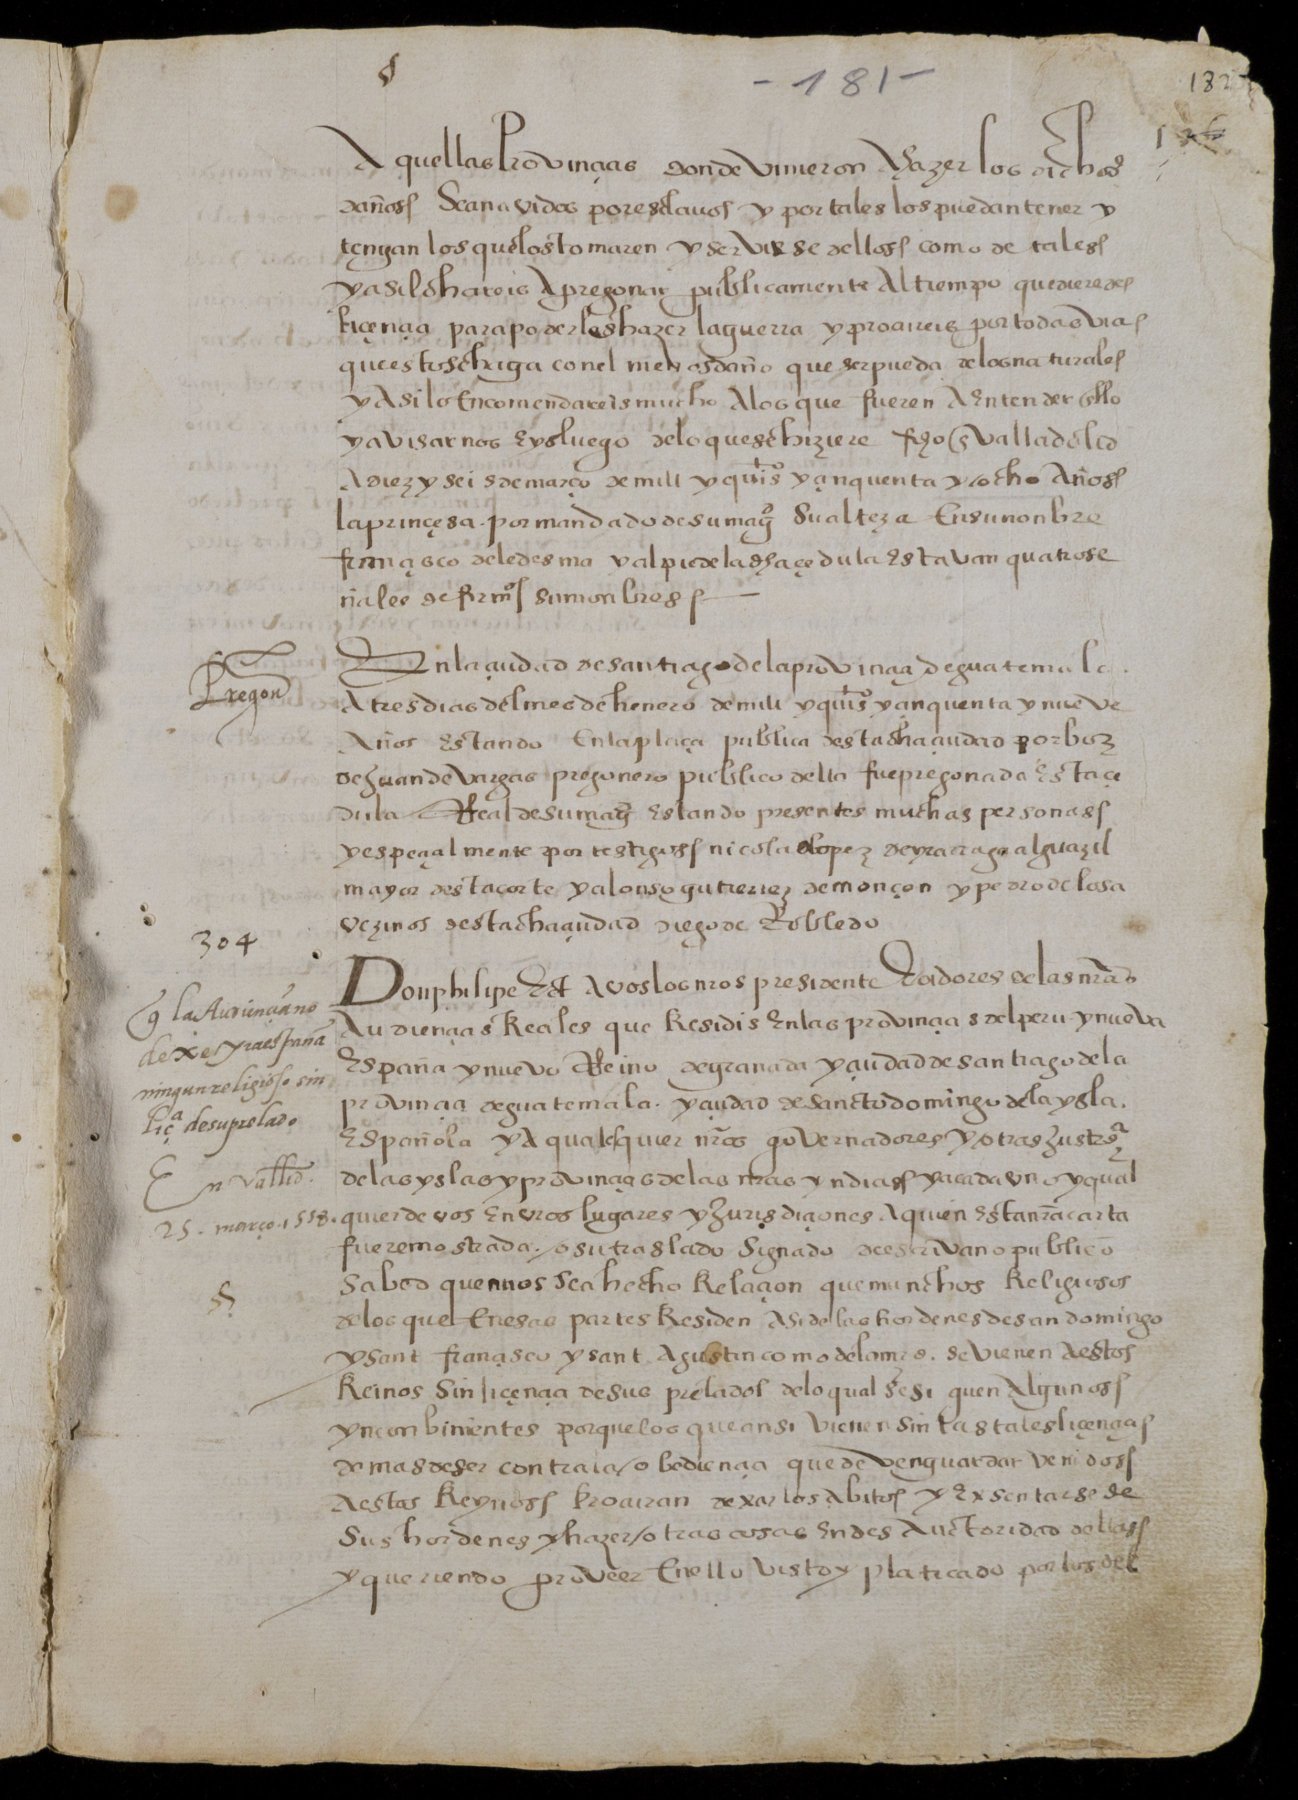 - 181 -
182
Aquellas provinçias donde vinieron A hazer los dichos
daños Sean avidos por esclavos y por tales los puedan tener y
tengan los que los tomaren y servirse dellos como de tales
y asi lo hareis Apregonar publicamente Al tiempo que dieredes
liçençia para poderles hazer la guerra y proveireis por todas vias
que esto se haga con el menos daño que ser pueda de los naturales
y Asi lo Encomendareis mucho A los que fueren A Entender en ello
y avisarnos eys luego de lo que se hiziere fho En Valladolid
A diez y seis de março de mill y quis y çinquenta y ocho Años
la prinçesa. por mandado de su magd Su alteza En su nonbre
françisco de ledesma y al pie de la dha çedula Estavan quatro se
ñales de firmas sin nonbres
Pregon
En la çiudad de santiago de la provinçia de guatemala.
A tres dias del mes de henero de mill y quis y çinquenta y nueve
Años Estando En la plaça publica desta dha çiudad por boz
de Juan de Vargas pregonero publico della fue pregonada Esta çe
dula Real de su magd Estando presentes muchas personas
y espeçialmente por testigos nicolas lopez de yrarraga alguazil
mayor desta corte y alonso gutierrez de monçon y pedro de losa
vezinos desta dha çiudad diego de Robledo
304
Don philipe Etc A vos los nros presidente E oidores de las nras
Audiençias Reales que Residis En las provinçias del peru y nueva
España y nuevo Reino de granada y çiudad de santiago de la
provinçia de guatemala. y çiudad de sancto domingo de la ysla.
Española y A qualesquier nros governadores y otras Justas
de las yslas y provinçias de las nras yndias y a cada uno y qual
quier de vos En vros lugares y Jurisdiçiones A quien Esta nra carta
fuere mostrada. o su traslado Signado de escrivano publico
Sabed que a nos Se a hecho Relaçion que munchos Religiosos
de los que En esas partes Residen Asi de las hordenes de san domingo
y sant françisco y sant Agustin como de la mrd. se vienen A estos
Reinos Sin liçençia de sus prelados de lo qual se siguen Algunos
ynconbinientes porque los que ansi vienen sin las tales liçençias
demas de ser contra la obediençia que deven guardar venidos
A estos Reynos procuran dexar los Abitos y Exsentarse de
Sus hordenes y hazer otras cosas En des Auctoridad dellas
y queriendo proveer En ello visto y platicado por los del
q la Audiençia no
dexe yr a españa
ningun religioso sin
liça de su prelado
En Vallid.
25. março. 1558.